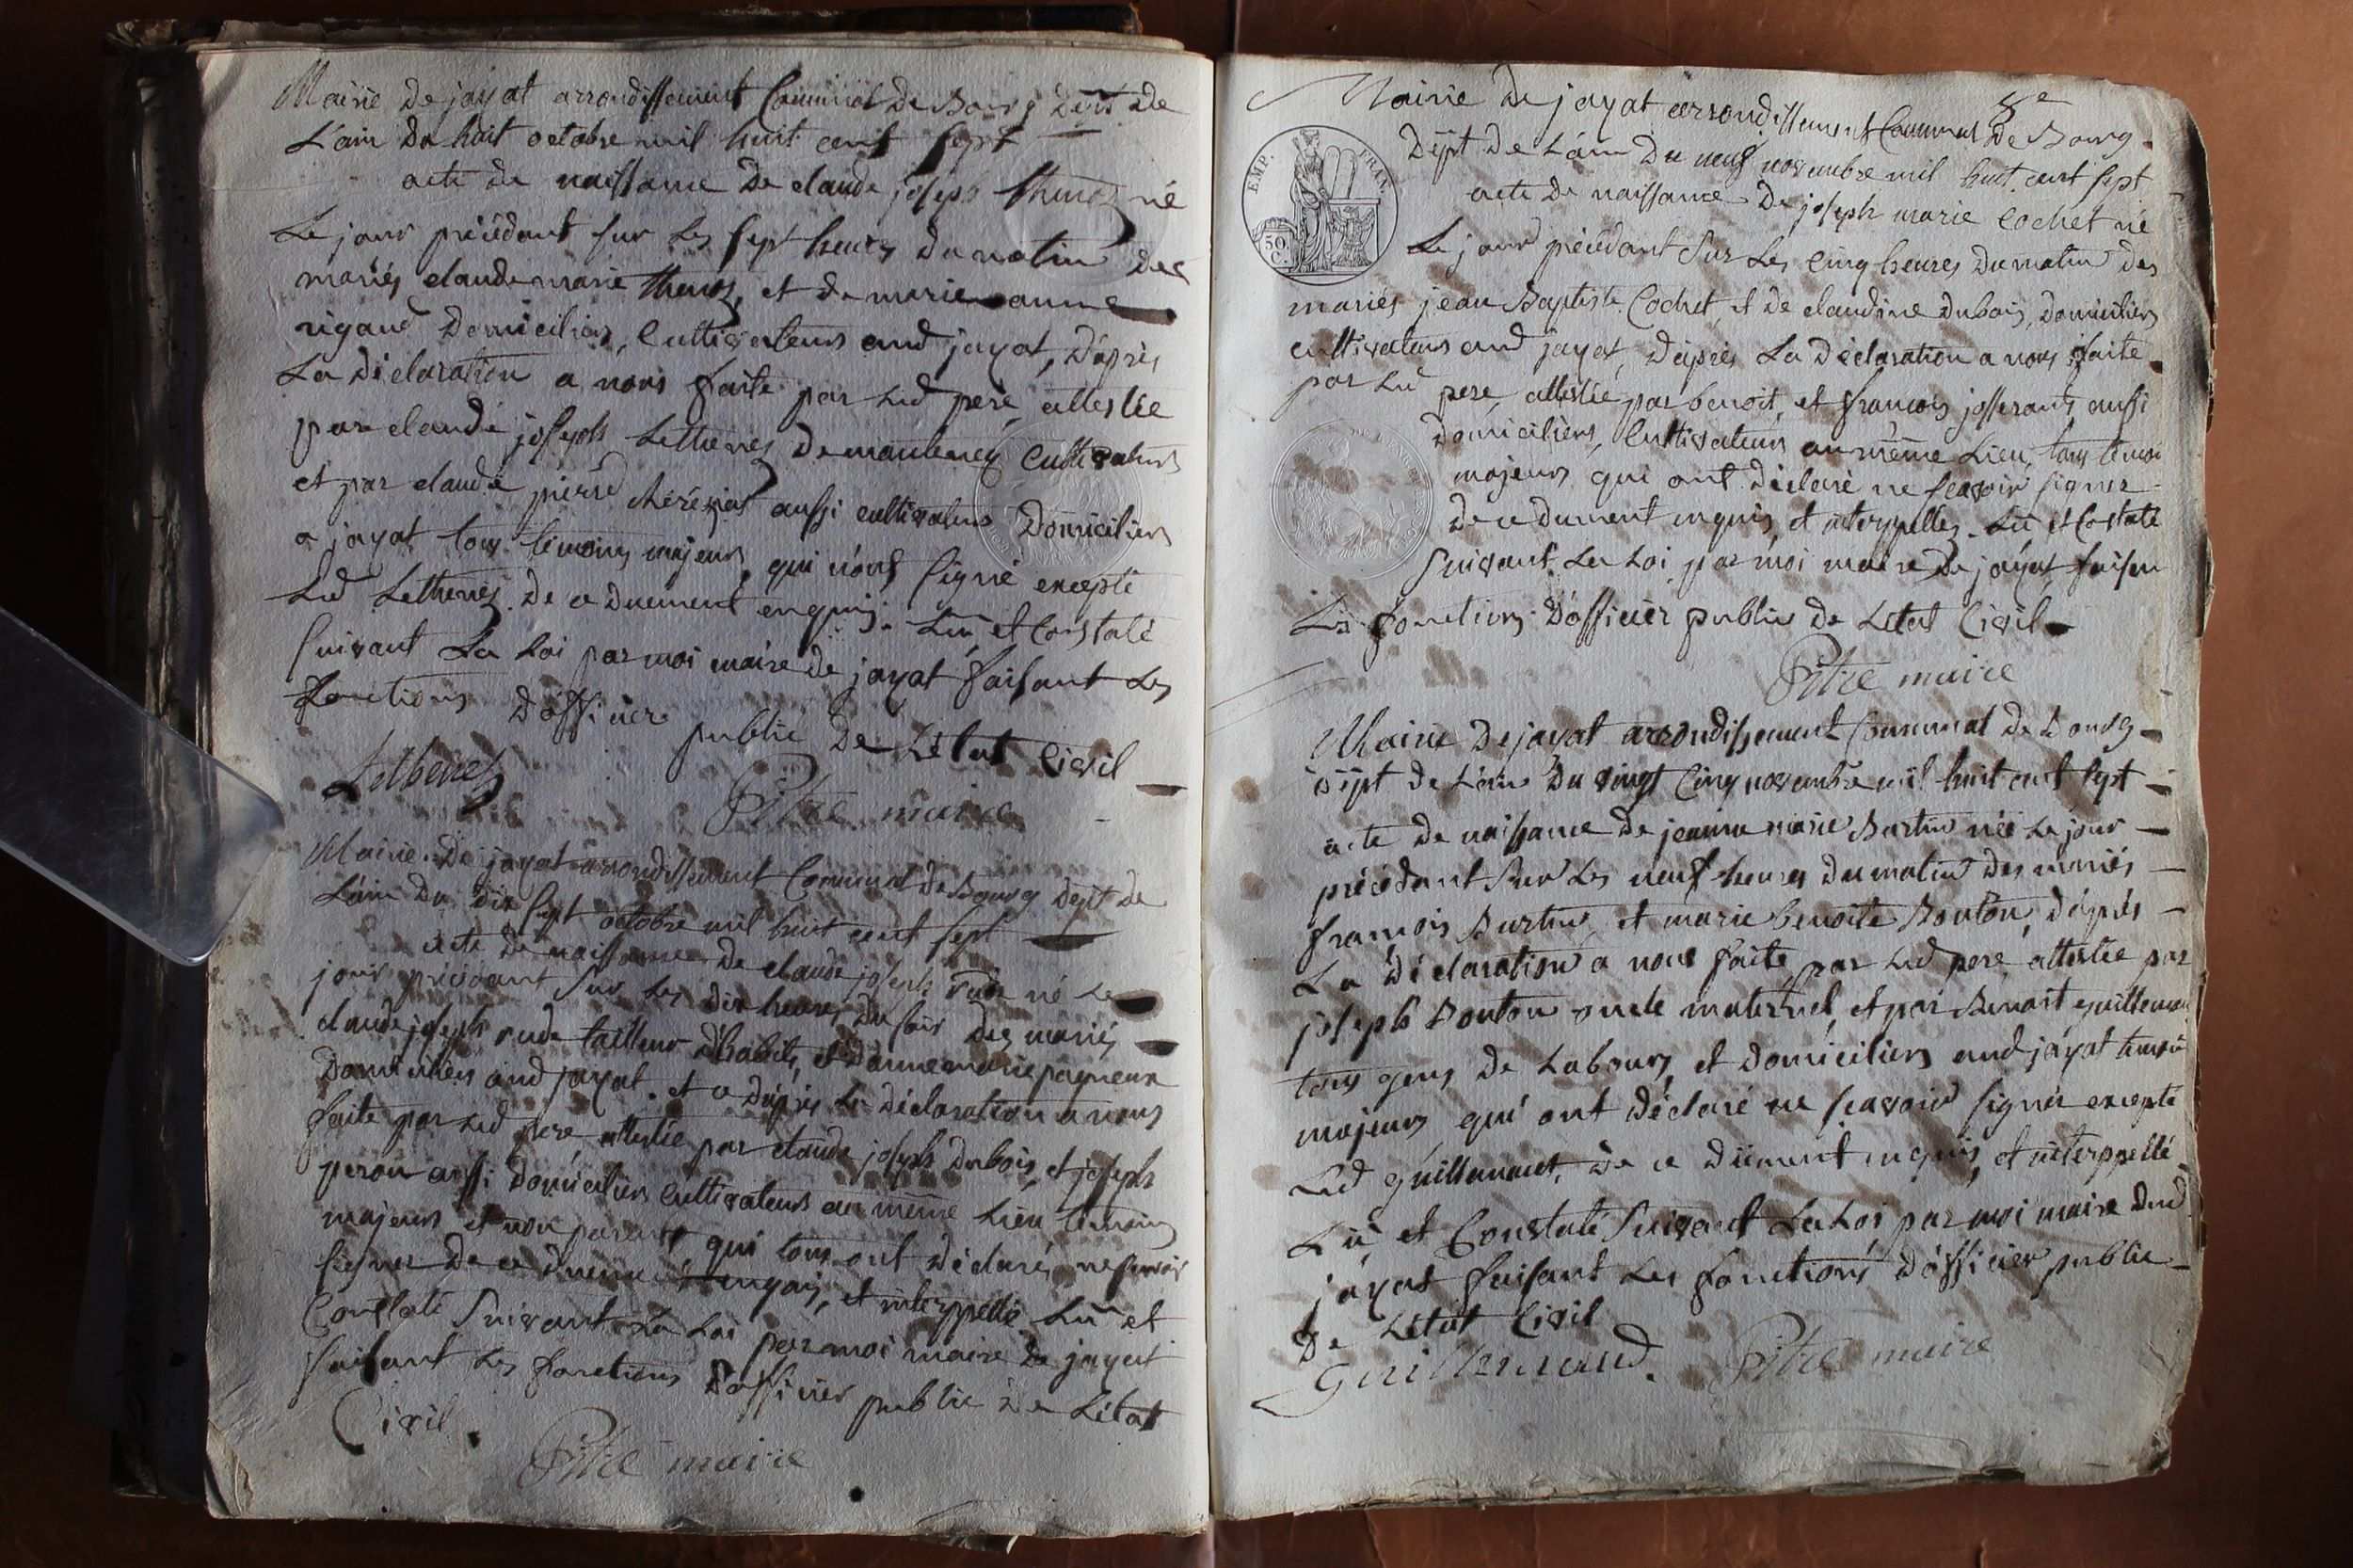 Mairie De jayat arrondissement Communal De Bourg Dept De
L'ain Du huit octobre mil huit cent sept
acte de naissance De claude joseph thenoz né
Le jour précédant sur Les sept heures du matin Des
mariés claude marie thenoz, et de marie anne
rigaud Domiciliers, Cultivateurs aud jayat, D'après
La Déclaration a nous faite par Led pere, attestée
par claude joseph Lethenez De mantenez Cultivateurs
et par claude pierre aussi cultivateurs Domiciliers
a jayat tous temoins majeurs, qui n'ont signé excepté
Led Lethenez. De ce duement enquis. Lu et Constaté
suivant La Loi par moi maire de jayat faisant Les
fonctions D'officier public De Letat Civil
Lethenez
Pitre maire
Mairie De jayat arrondissement Communal de Bourg Dept De
L'ain Du Dix sept octobre mil huit cent sept
acte de naissance De claude joseph rude né Le
jour précédant sur Les Dix heures Du soir Des mariés
claude joseph rude tailleur D'habits, et D'anne marie pagneux
Domiciliers aud jayat. et ce D'après La Déclaration a nous
faite par Led pere attestée par claude joseph Dubois, et joseph
peron aussi Domiciliers Cultivateurs au même Lieu temoins
majeurs et non parents, qui tous ont Déclarés ne savoir
signer De ce duement enquis, et interppellé Lu et
Constaté suivant La Loi par moi maire De jayat
faisant Les fonctions D'officier public De Létat
Civil.
Pitre maire
8e
Mairie De jayat arrondissement Communal De Bourg
EMP. FRAN.
50 C.
Dept De L'ain Du neuf novembre mil huit cent sept
acte De naissance De joseph marie Cochet né
Le jour précédant sur Les Cinq heures Du matin Des
mariés jean Baptiste Cochet, et De claudine Dubois, Domiciliers
cultivateurs aud jayat, D'après La Déclaration a nous faite
par Led pere, attestée par benoit, et françois josserans aussi
Domiciliers, Cultivateurs au même Lieu, tous temoin
majeurs qui ont Déclaré ne scavoir signer
De ce dument enquis, et interppelles. Lu et Costaté
suivant La Loi par moi maire De jayat faisan
Les fonctions D'officier public De Letat Civil
Pitre maire
Mairie De jayat arrondissement Communal De Bourg
Dept De L'ain Du vingt Cinq novembre mil huit cent sept
acte De naissance De jeanne marie Burtin née Le jour
précédant sur Les neuf heures Du matin Des mariés
françois Burtin, et marie benoite Bouton, D'après
La Déclaration a nous faite par Led pere attestée par
joseph Bouton oncle maternel, et par Benoit guillemau
tous gens De Labours, et Domiciliers aud jayat temoin
majeurs qui ont Déclaré ne scavoir signer excepté
Led guillemaut, De ce Düment enquis, et interppellé
Lu et Constaté suivant La Loi par moi maire Dud
jayat faisant Les fonctions D'officier public
De Letat Civil
Guillemaud. Pitre maire